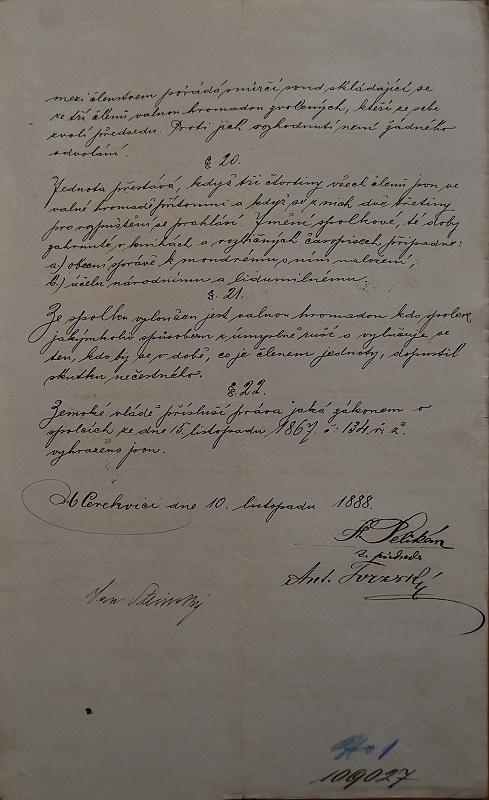 mezi členstvem pořádá smírčí soud skládající se
ze tří členů valnou hromadou zvolených, kteří ze sebe
zvolí předsedu. Proti jich rozhodnutí není žádného
odvolání.
§ 20.
Jednota přestává, když tři čtvrtiny všech členů jsou ve
valné hromadě přítomni a když se z nich dvě třetiny
pro rozpuštění se prohlásí. Jmění spolkové, té doby
zahrnuté v knihách a rozličných časopisech připadne:
a.) obecní správě k moudrému s ním naložení;
b.) účelu národnímu a lidumilnému.
§. 21.
Ze spolku vyloučen jest valnou hromadou kdo spolek
jakýmkoliv způsobem z úmyslně ruší a vylučuje se
ten, kdo by se v době, co je členem jednoty, dopustil
skutku nečestného.
§. 22.
Zemské vládě přísluší práva jaká zákonem o
spolcích ze dne 15. listopadu 1867. č: 134. ř: z.
vyhrazena jsou.
V Cerekvici dne 10. listopadu 1888.
Pelikán
z. předseda
Ant.
Jan
No 1
109027